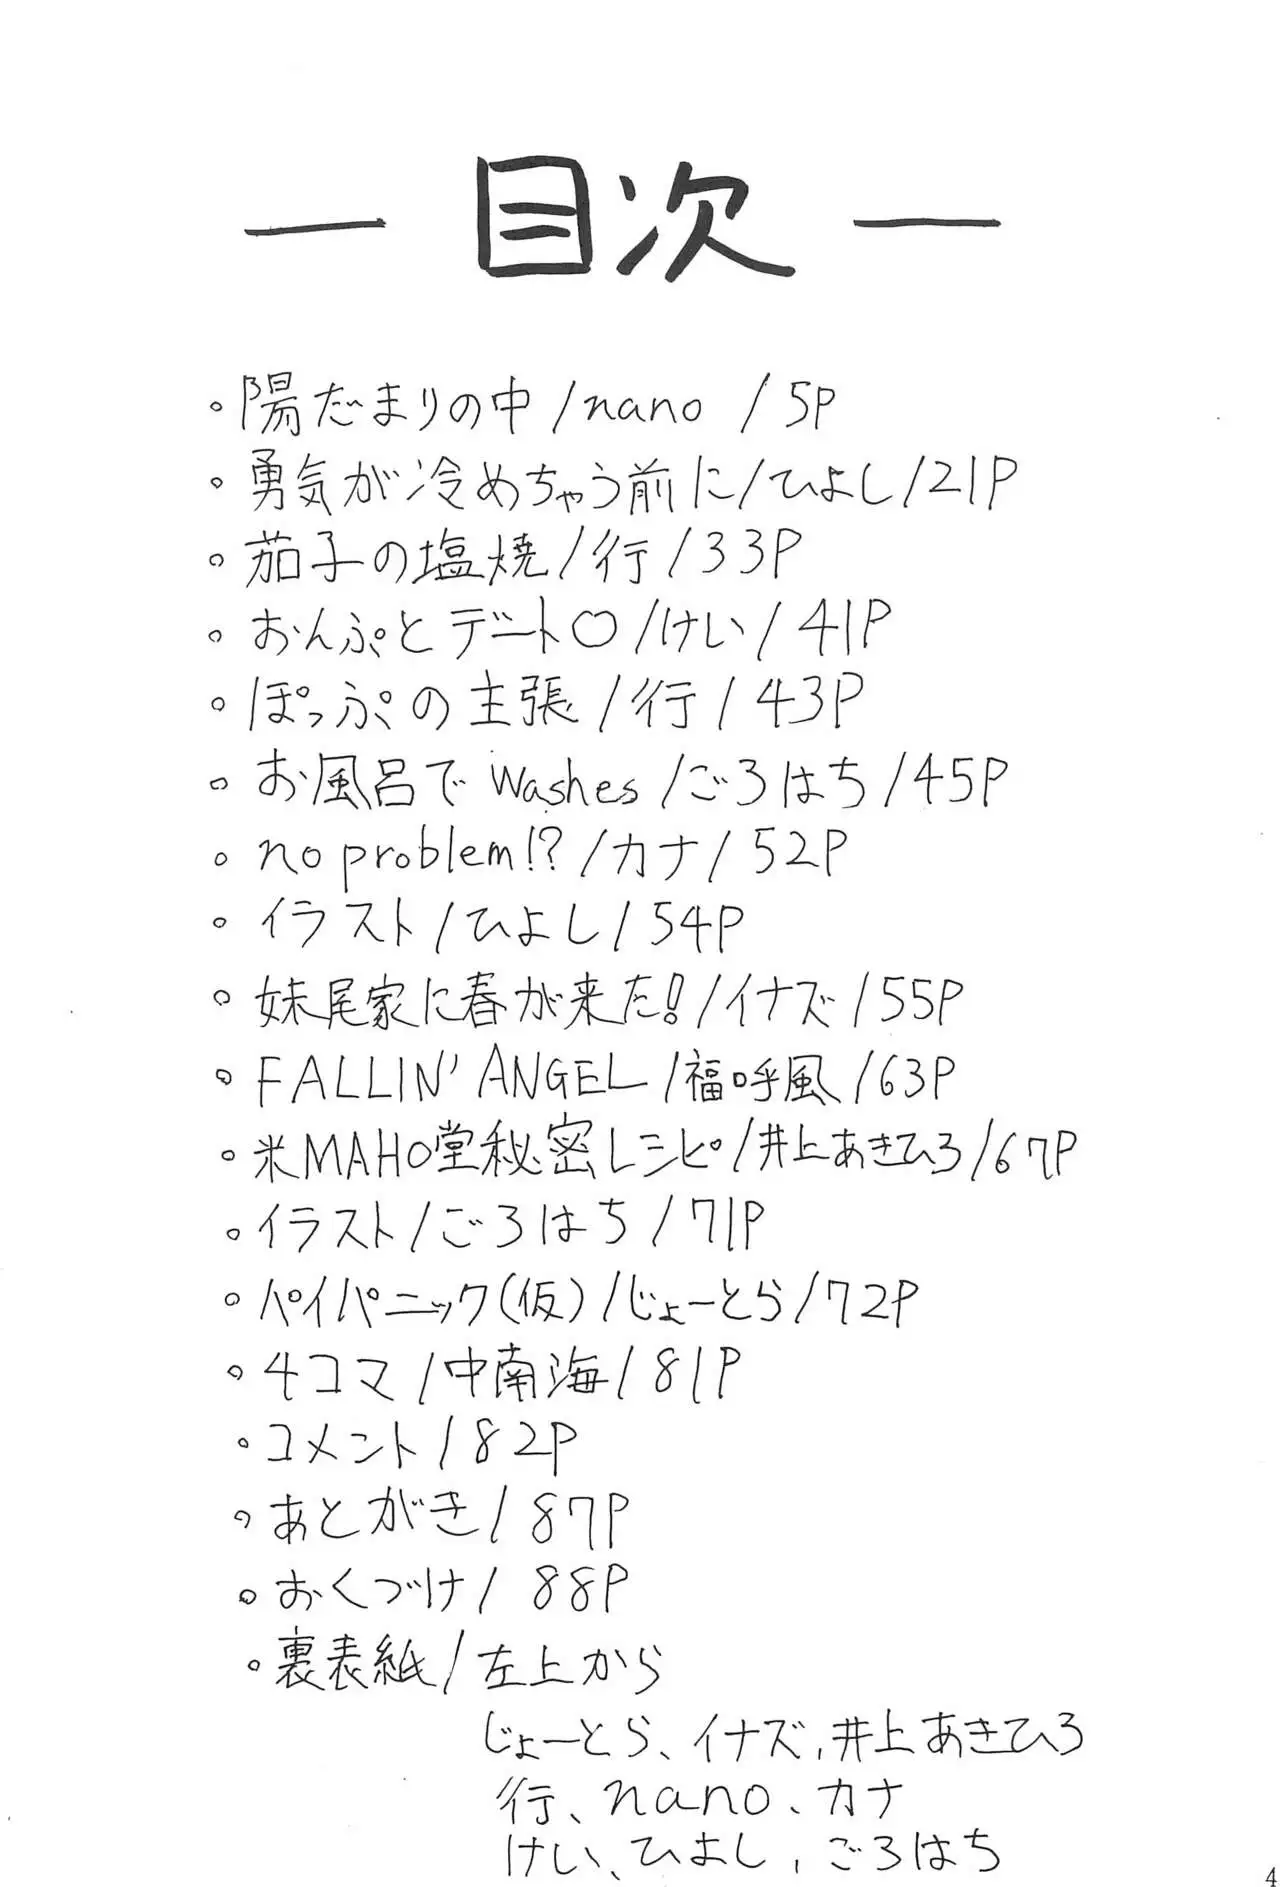 ― 目次 ―
。陽だまりの中/nano/5P
。勇気が冷めちゃう前に/ひよし/21P
。茄子の塩焼/行/33P
。おんぷとデート♡/けい/41P
。ぽっぷの主張/行/43P
。お風呂でWashes/ごろはち/45P
。no problem!?/カナ/52P
。イラスト/ひよし/54P
。妹尾家に春が来た!/イナズ/55P
。FALLIN' ANGEL/福呼風/63P
。米MAHO堂秘密レシピ/井上あきひろ/67P
。イラスト/ごろはち/71P
。パイパニック(仮)/じょーとら/72P
。4コマ/中南海/81P
。コメント/82P
。あとがき/87P
。おくづけ/88P
。裏表紙/左上から
じょーとら、イナズ、井上あきひろ
行、nano、カナ
けい、ひよし、ごろはち
4